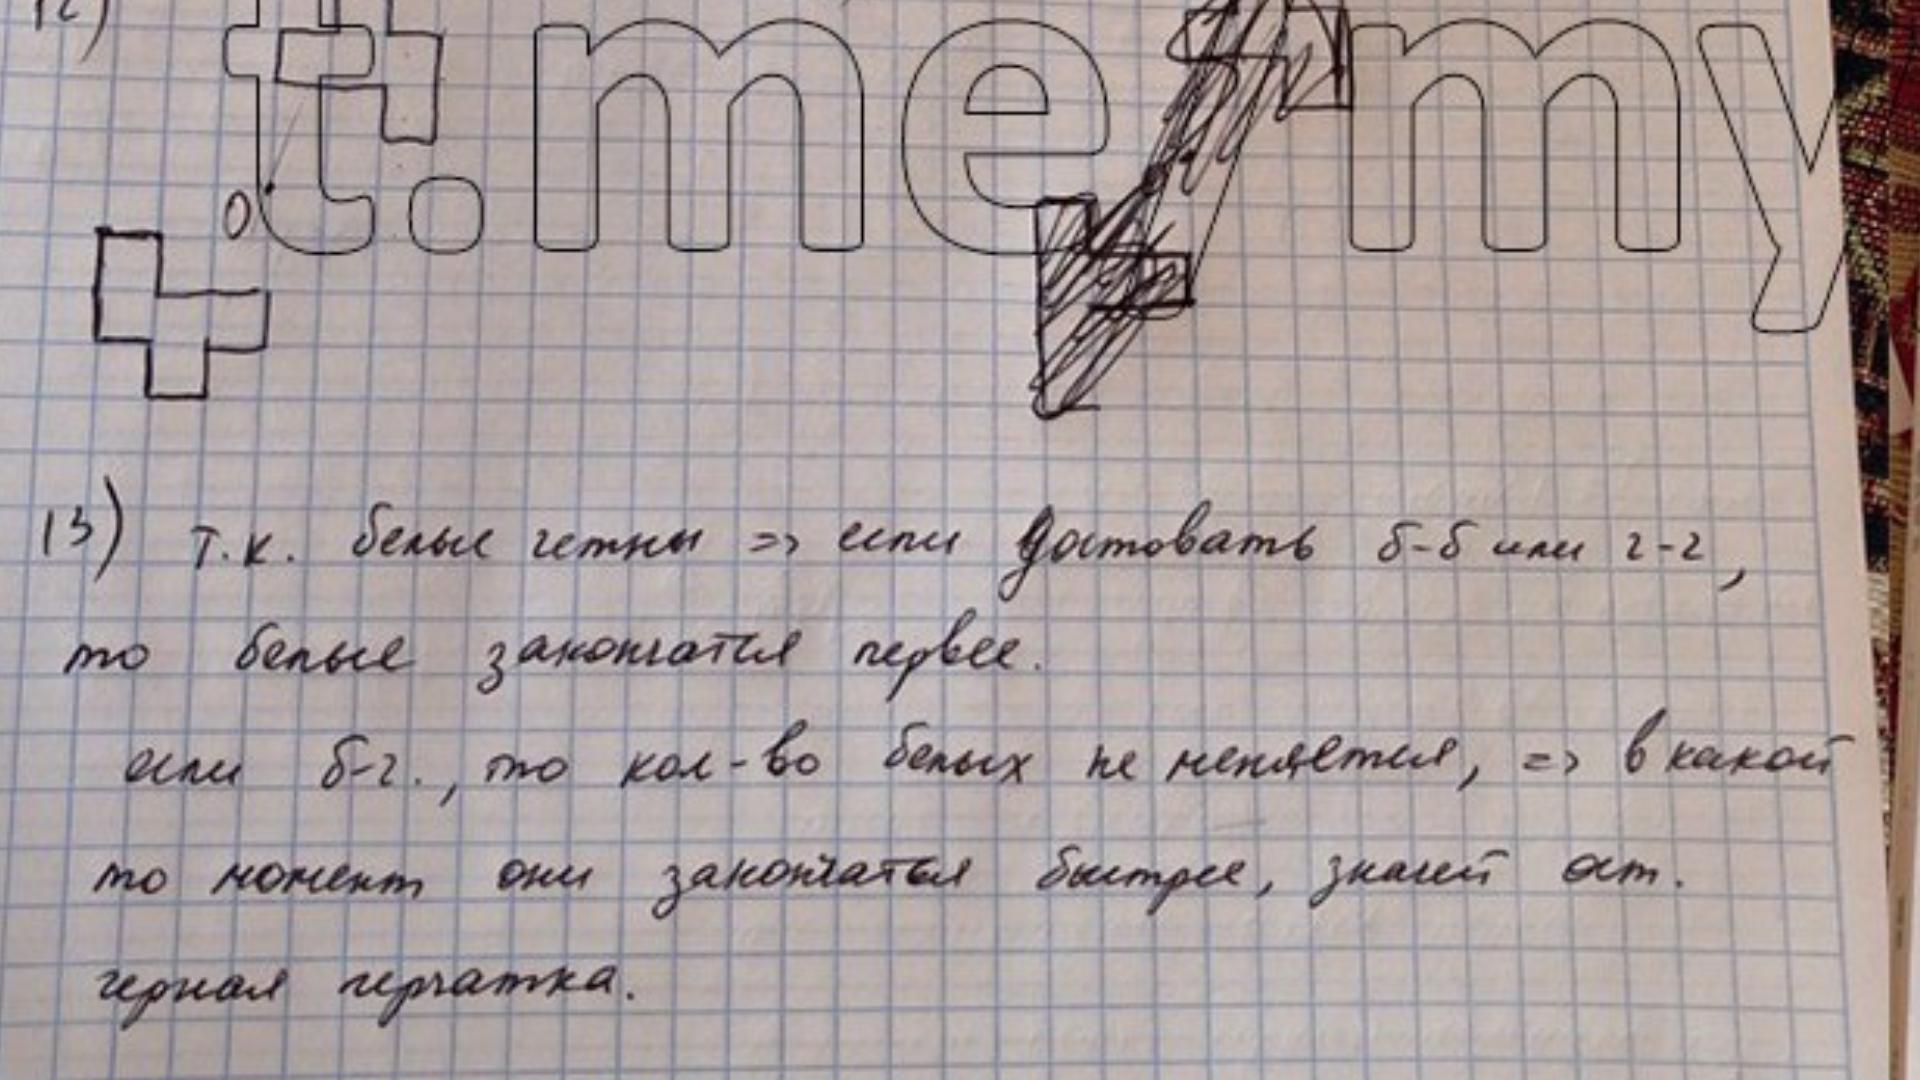 12)
t.me/my
0
13) т.к. белые четны => если достовать б-б или г-г,
то белые закончатся первее.
если б-г., то кол-во белых не меняется, => в какой
то момент они закончаться быстрее, значит ост.
черная перчатка.